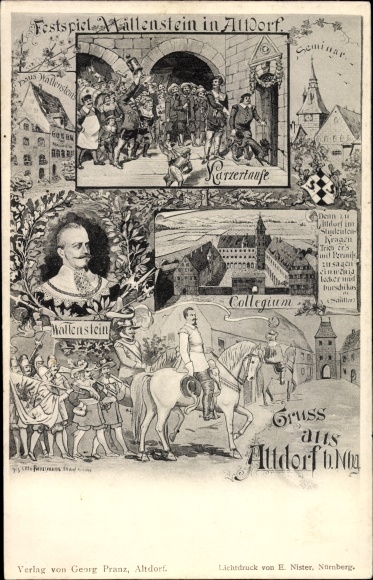 Festspiel Wallenstein in Altdorf.
Haus Wallenstein
Seminar
Karzertaufe
Denn zu
Altdorf im
Studenten
Kragen
Trieb er's
mit Permiß
zu sagen
Ein wenig
locker und
burschikos
Schiller
Collegium
Wallenstein
Gruss
aus
Altdorf b. Nbg.
Verlag von Georg Pranz, Altdorf.
Lichtdruck von E. Nister, Nürnberg.